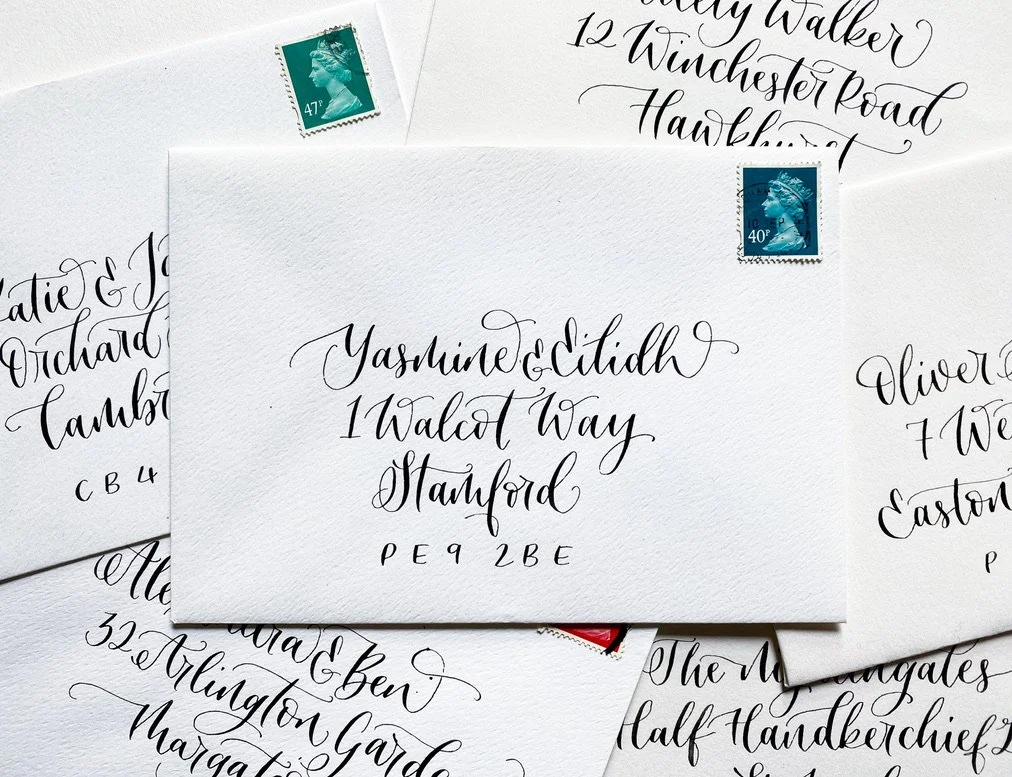 47P
Walker
12 Winchester Road
Hawkhurst
40P
Yasmine & Eilidh
1 Walcot Way
Stamford
PE9 2BE
atie & Jo
Orchard
Cambr
CB4
Oliver
7 We
Easton
P
& Ben
32 Arlington Garde
Margate
The Nightingates
Half Handkerchief